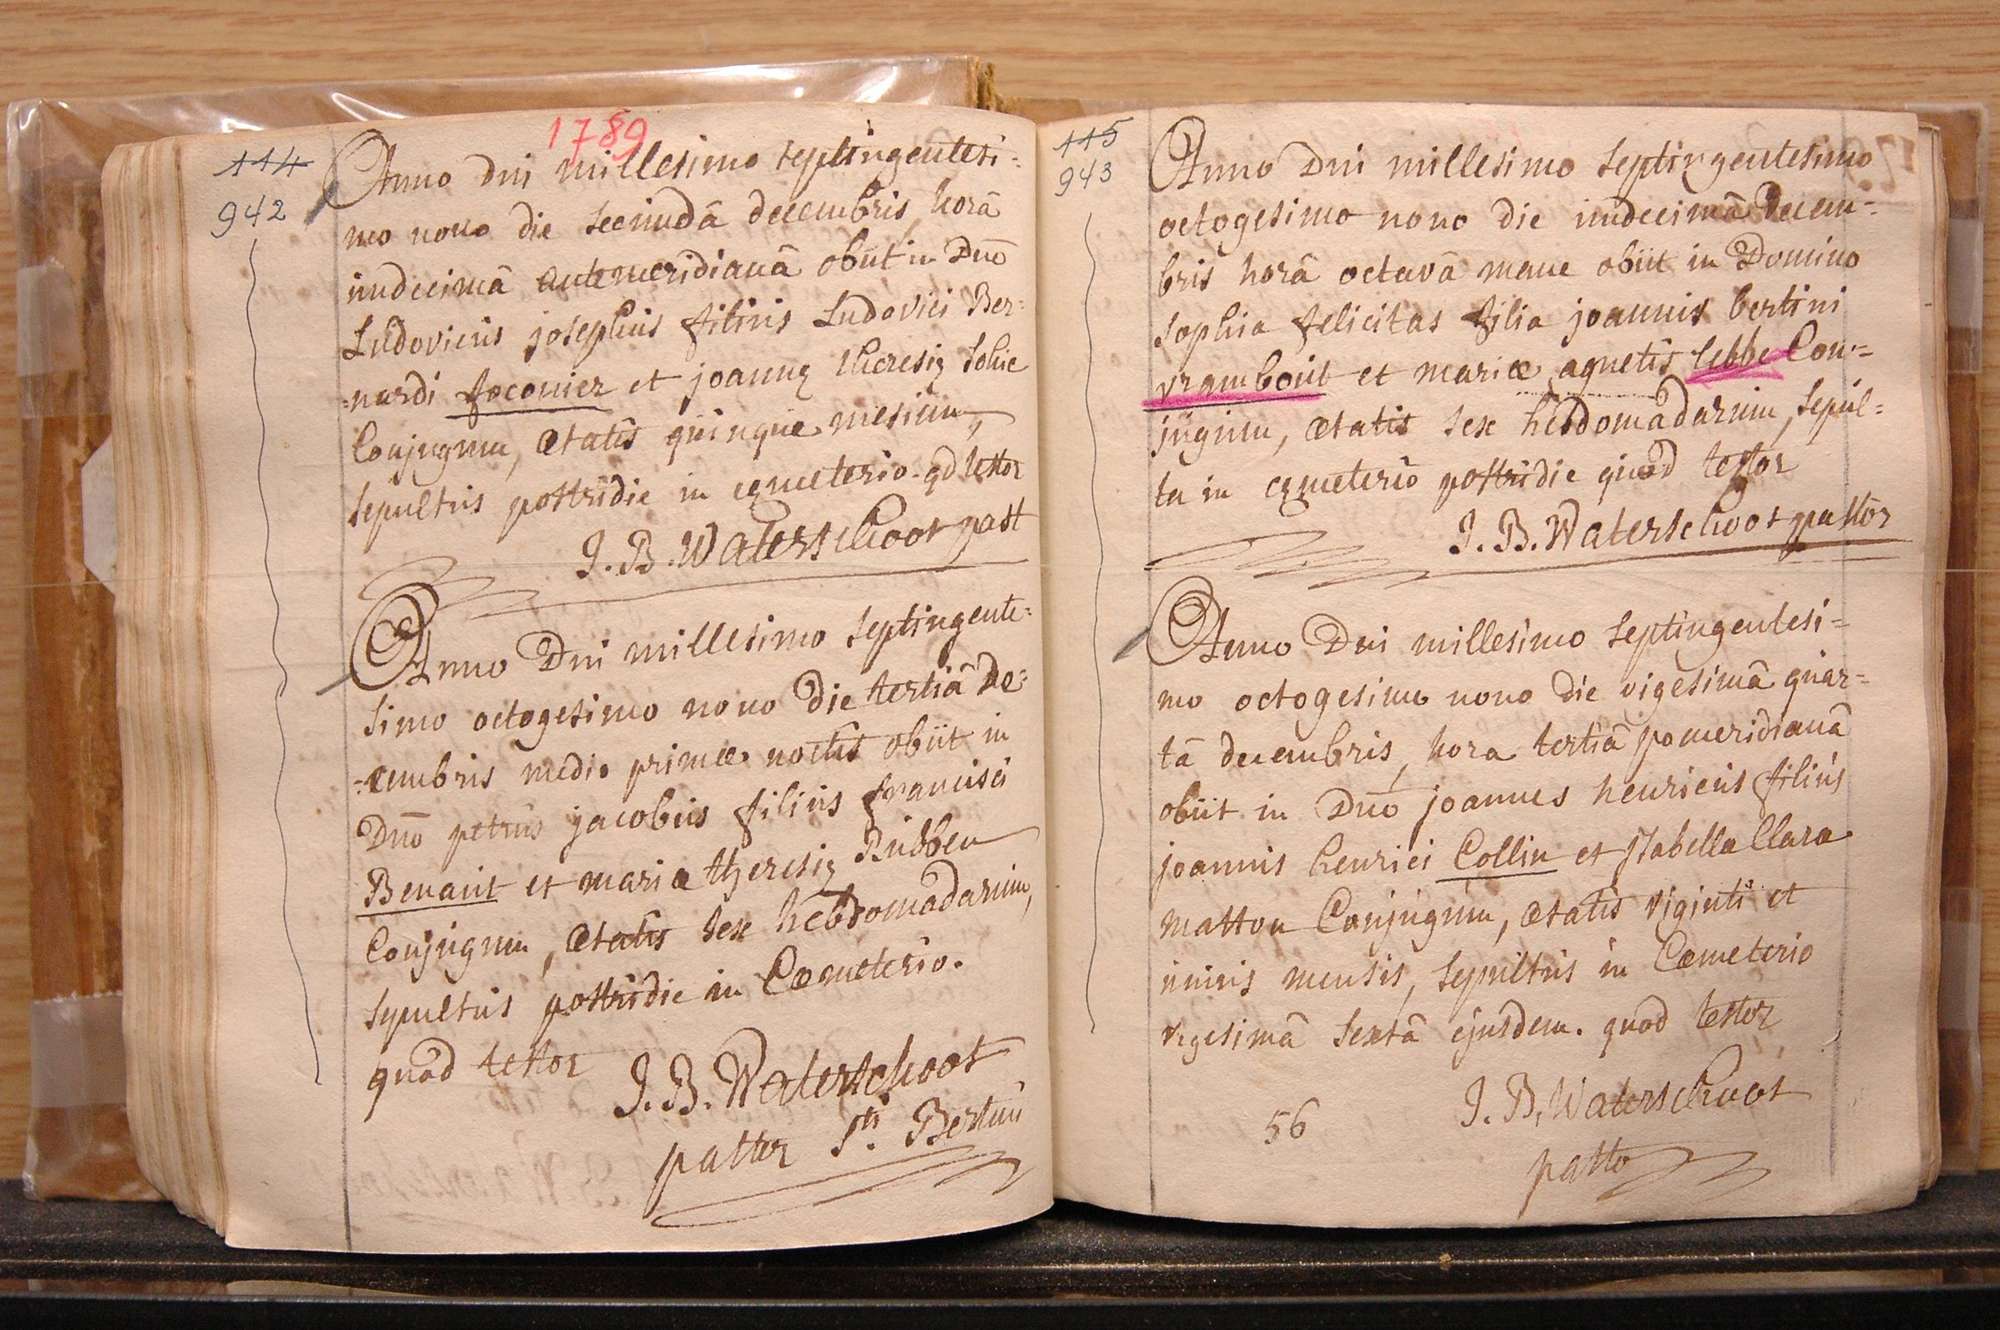 1789
114
942
Anno Dni millesimo septingentesi=
mo nono die secundâ decembris, horâ
undecimâ antemeridianâ obiit in Dno
Ludovicus josephus filius Ludovici Ber=
=nardi foconier et joannæ theresiæ Sohie
Conjugum, ætatis quinque mesium,
sepultus postridie in cæmeterio. qd testor
J. B. Waterschoot past
Anno Dni millesimo septingente=
simo octogesimo nono die tertiâ de=
=cembris medio primæ noctis obiit in
Dno petrus jacobus filius francisci
Benaut et mariæ theresiæ Rubben
Conjugum, ætatis sex hebdomadarum,
sepultus postridie in Cœmeterio.
quod testor J. B. Waterschoot
pastor Sti Bertini
115
943
Anno Dni millesimo septingentesimo
octogesimo nono die undecimâ Decem=
bris horâ octavâ mane obiit in Domino
sophia felicitas filia joannis bertini
vrambout et mariæ agnetis lebbe Con=
jugum, ætatis sex hebdomadarum, sepul=
ta in cæmeterio postridie quod testor
J. B. Waterschoot pastor
Anno Dni millesimo septingentesi=
mo octogesimo nono die vigesimâ quar=
tâ decembris, hora tertiâ pomeridianâ
obiit in Dno joannes henricus filius
joannis henrici Collin et isabella Clara
matton Conjugum, ætatis viginti et
unius mensis, sepultus in Cœmeterio
vigesimâ sextâ ejusdem. quod testor
J. B. Waterschoot
56
pasto